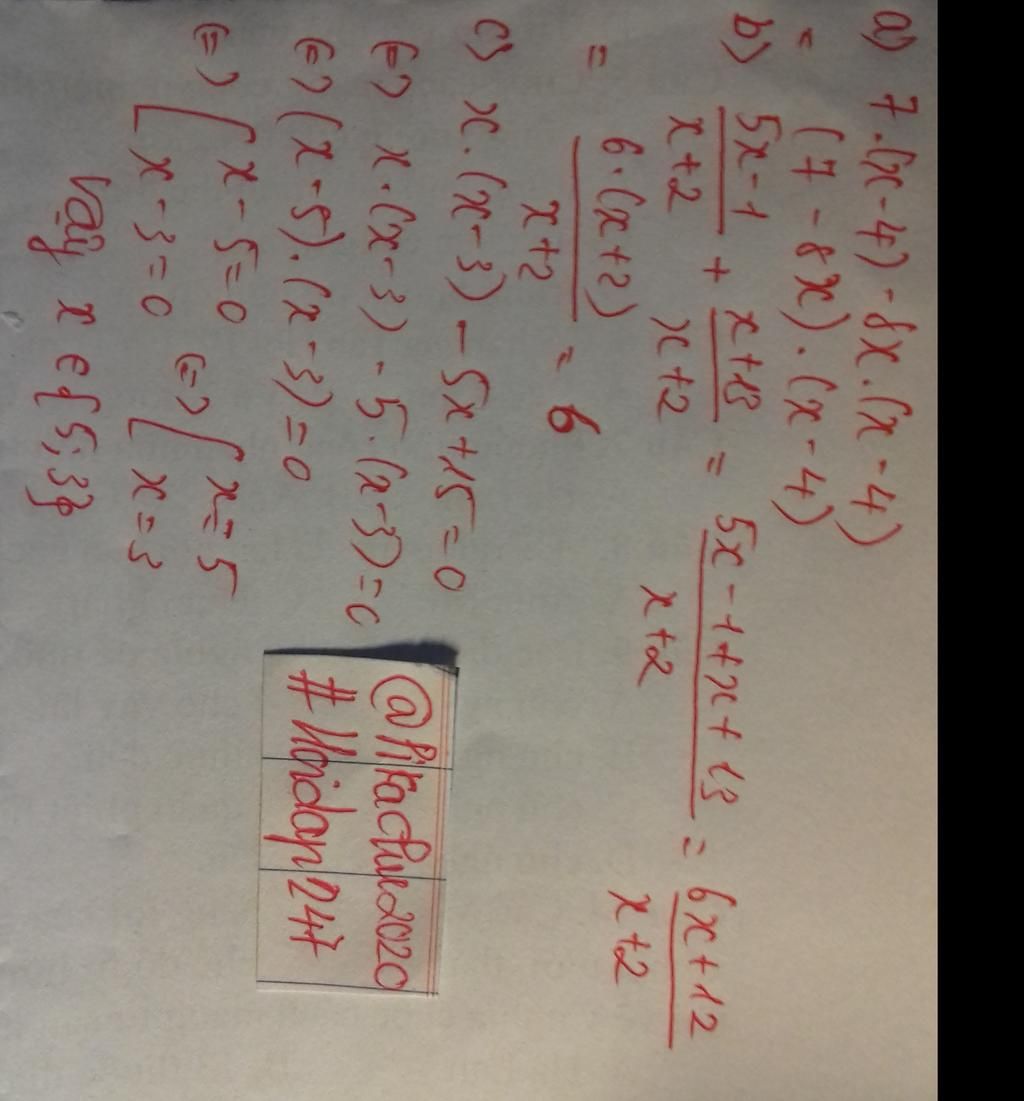 a) 7.(x-4)-8x.(x-4)
= (7-8x).(x-4)
b) \frac{5x-1}{x+2} + \frac{x+13}{x+2} = \frac{5x-1+x+13}{x+2} = \frac{6x+12}{x+2}
= \frac{6.(x+2)}{x+2} = 6
c) x.(x-3)-5x+15=0
(=) x.(x-3)-5.(x-3)=0
(=) (x-5).(x-3)=0
(=) [ x-5=0 (=) [ x=5
x-3=0 x=3
Vậy x ∈ {5;3}
@Pikachue2020
#Hoidap247